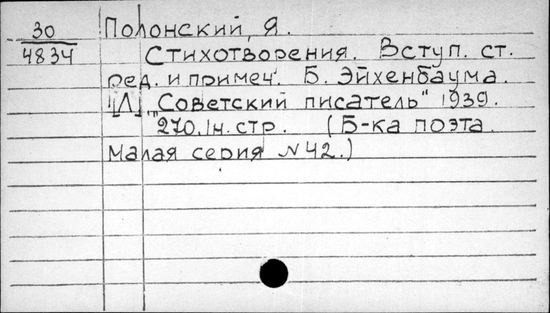 30 Полонский, Я.
4834 Стихотворения. Вступ. ст.
ред. и примеч. Б. Эйхенбаума.
[Л] "Советский писатель" 1939.
270.1н.стр. (Б-ка поэта.
Малая серия №42.)